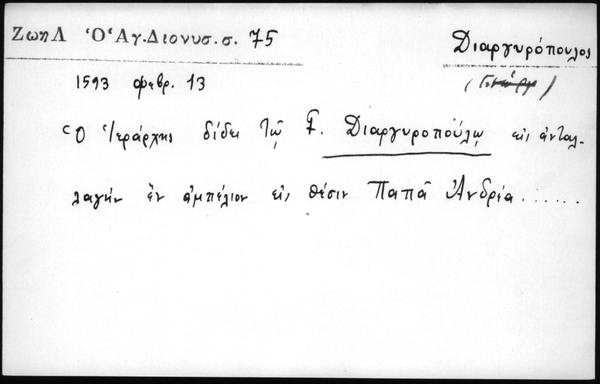 ΖωηΛ Ὁ Ἁγ.Διονυσ.σ. 75
Διαργυρόπουλος
1593 φεβρ. 13
Ὁ Ἱεράρχης δίδει τῷ Γ. Διαργυροπούλῳ εἰς ἀνταλ-
λαγήν ἕν ἀμπέλιον εἰς θέσιν Παπᾶ Ἀνδρέα.......